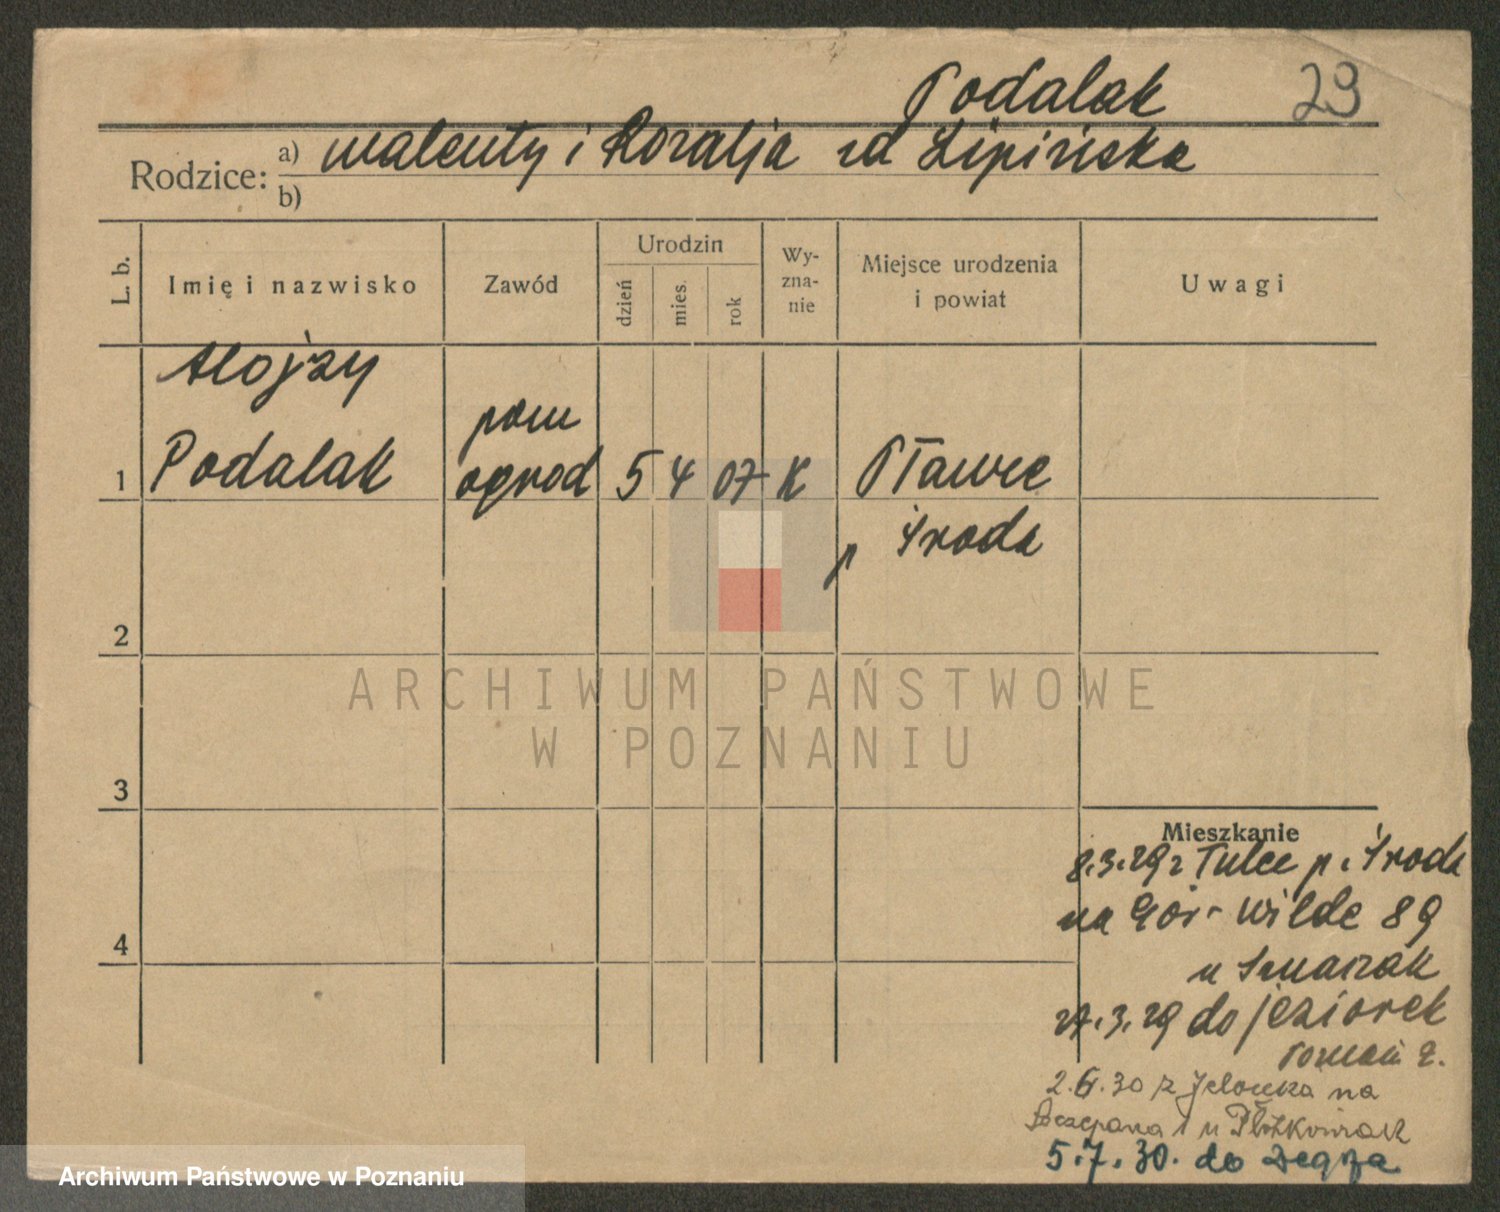 Podalak 29
Rodzice: a) Walenty i Rozalja zd Lipińska
b)
L. b.
Imię i nazwisko
Zawód
Urodzin
dzień
mies.
rok
Wy-
zna-
nie
Miejsce urodzenia
i powiat
Uwagi
Alojzy
Podalak
pom
ogrod
5 4 07 K
Pławce
p Środa
1
2
3
4
Mieszkanie
8.3.29 z Tulce p. Środa
na Gór- Wilde 89
u
27.3.29 do Jeziorek
Poznań z.
2.6.30 z na
Szczepana 1 u
5.7.30. do
ARCHIWUM PAŃSTWOWE
W POZNANIU
Archiwum Państwowe w Poznaniu